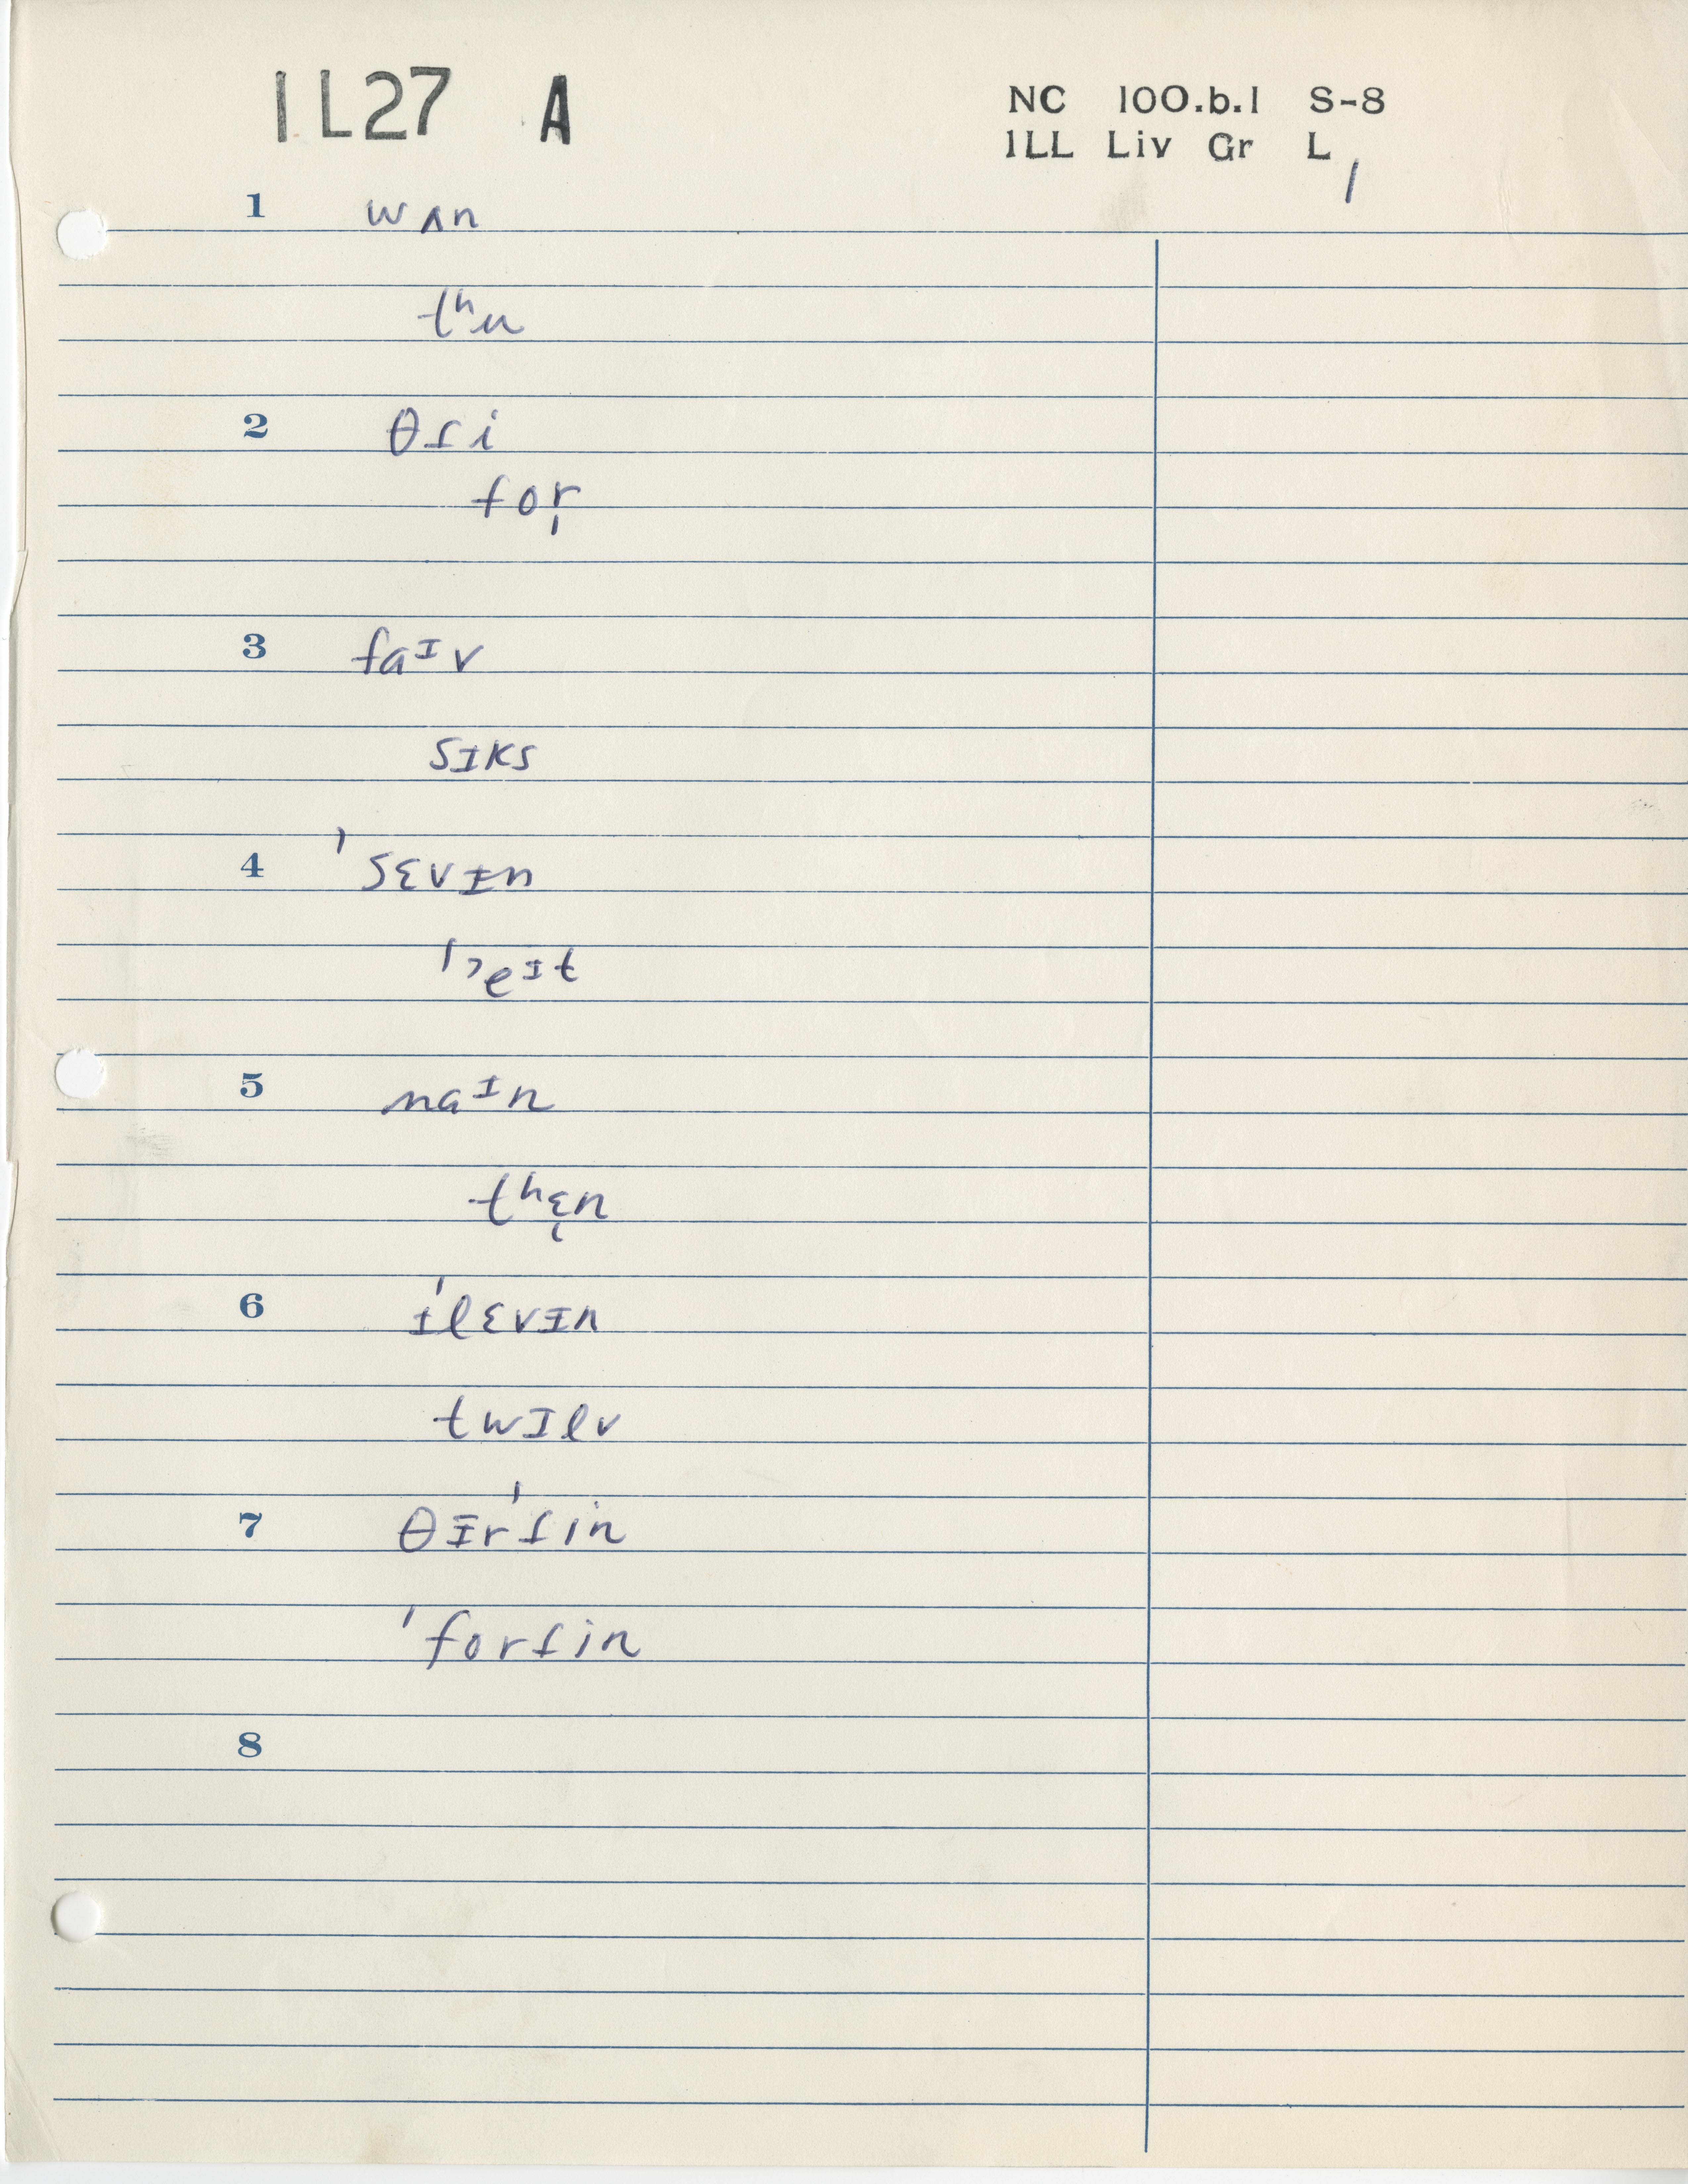 1L27 A
NC 100.b.1 S-8
1LL Liv Gr L 1
1 wʌn
tʰu
2 θɾi
for̩
3 faᶦv
sɪks
4 ˈsɛvɪn
ˈʔeᶦt
5 naᶦn
tʰɛ̜n
6 ɪˈlɛvɪn
twɪlv
7 θɪrˈɾin
ˈforɾin
8